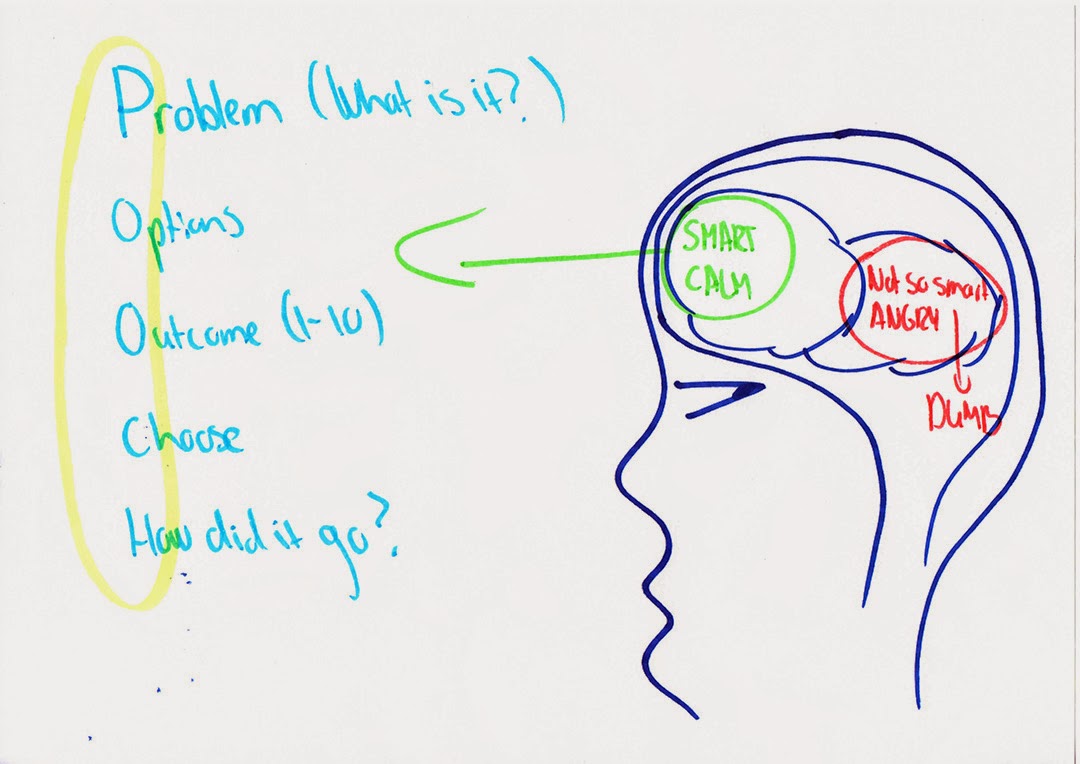 Problem (What is it?)
Options
Outcome (1-10)
Choose
How did it go?
SMART
CALM
Not so smart
ANGRY
DUMB